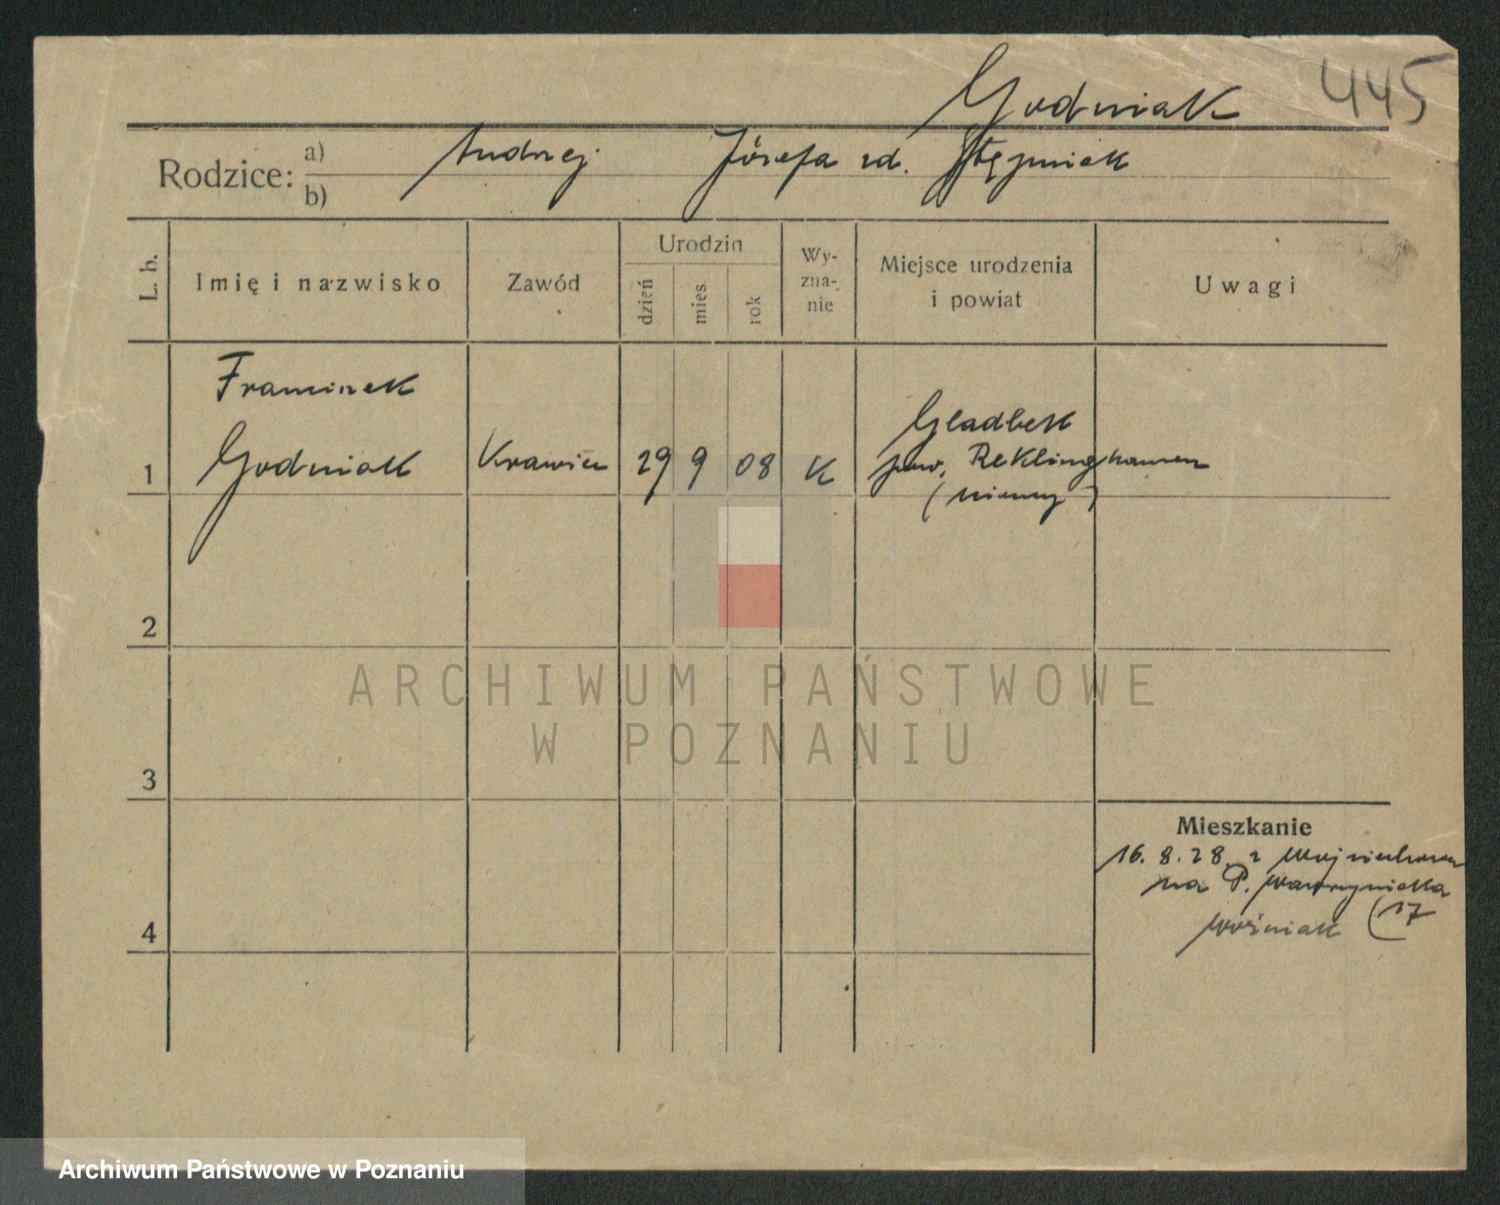 Godniak 445
Rodzice: a) Andrzej Józefa zd. Stępniak
b)
L. b. Imię i nazwisko Zawód Urodzin dzień mies. rok Wy-zna-nie Miejsce urodzenia i powiat Uwagi
Franciszek
Godniak Krawiec 29 9 08 K Gladbeck
1 pow. Reklinghausen
(niemcy)
2
ARCHIWUM PAŃSTWOWE
W POZNANIU
3
Mieszkanie
16. 8. 28. z Wojciechowa
na P. Wawrzyniaka
17
Woźniak
4
Archiwum Państwowe w Poznaniu